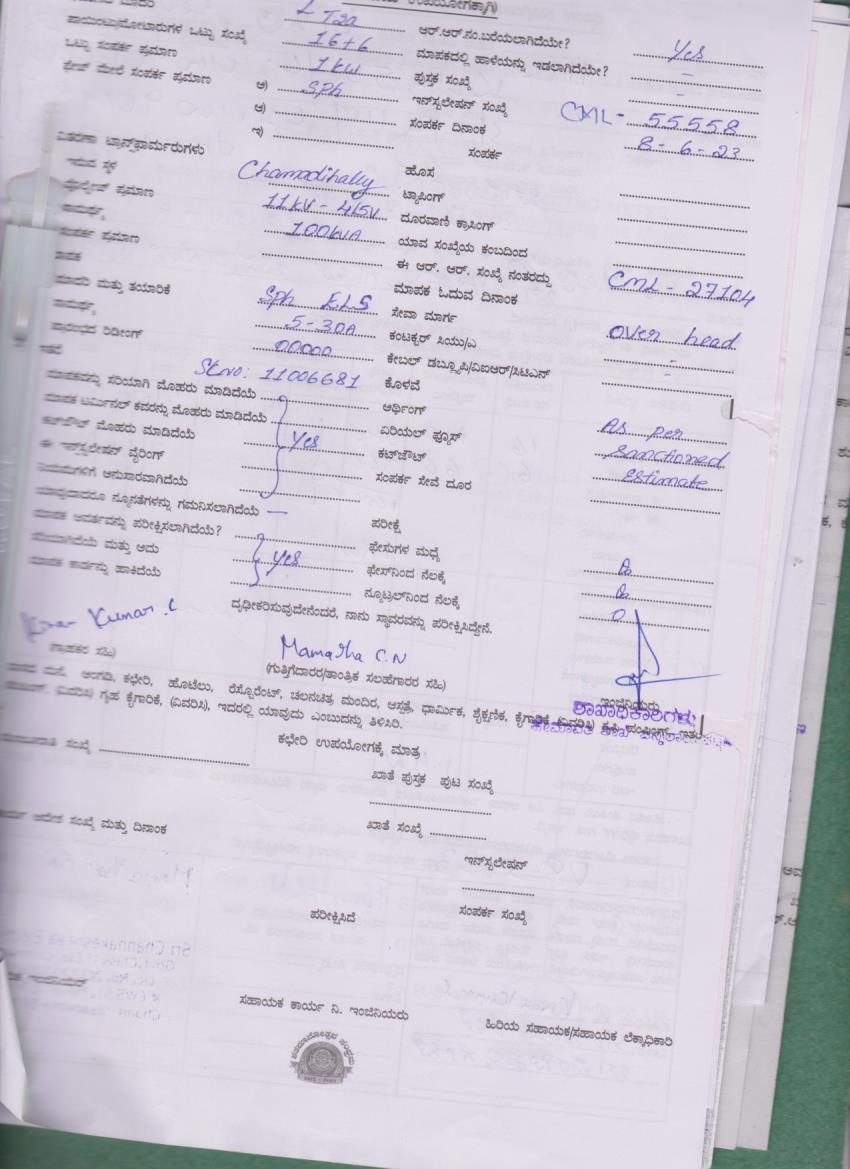 ಉಪಯೋಗಕ್ಕಾಗಿ)
LT2a ಆರ್.ಆರ್.ನಂ.ಬರೆಯಲಾಗಿದೆಯೇ? Yes
ಪಾಯಿಂಟು/ಮೋಟಾರುಗಳ ಒಟ್ಟು ಸಂಖ್ಯೆ 16+6 ಮಾಪಕದಲ್ಲಿ ಹಾಳೆಯನ್ನು ಇಡಲಾಗಿದೆಯೇ? –
ಒಟ್ಟು ಸಂಪರ್ಕ ಪ್ರಮಾಣ 1KW ಪುಸ್ತಕ ಸಂಖ್ಯೆ –
ಫೇಜ್ ಮೇಲೆ ಸಂಪರ್ಕ ಪ್ರಮಾಣ ಅ) Sph ಇನ್‌ಸ್ಟಲೇಷನ್ ಸಂಖ್ಯೆ CML - 55558
ಆ) ಸಂಪರ್ಕ ದಿನಾಂಕ 8-6-23
ಇ) ಸಂಪರ್ಕ
ವಿತರಣಾ ಟ್ರಾನ್ಸ್‌ಫಾರ್ಮರುಗಳು ಹೊಸ
ಇರುವ ಸ್ಥಳ Chamadihally ಟ್ಯಾಪಿಂಗ್
ವೋಲ್ಟೇಜ್ ಪ್ರಮಾಣ 11KV - 415V ದೂರವಾಣಿ ಕ್ರಾಸಿಂಗ್
ಸಾಮರ್ಥ್ಯ 100KVA ಯಾವ ಸಂಖ್ಯೆಯ ಕಂಬದಿಂದ
ಸಂಪರ್ಕ ಪ್ರಮಾಣ ಈ ಆರ್. ಆರ್. ಸಂಖ್ಯೆ ನಂತರದ್ದು CML - 27104
ಮಾಪಕ ಓದುವ ದಿನಾಂಕ
ಮಾದರಿ ಮತ್ತು ತಯಾರಿಕೆ Sph ELS ಸೇವಾ ಮಾರ್ಗ Over head
ಸಾಮರ್ಥ್ಯ 5-30A ಕಂಟಕ್ಟರ್ ಸಿಯು/ಎ –
ಪ್ರಾರಂಭದ ರಿಡಿಂಗ್ 00000 ಕೇಬಲ್ ಡಬ್ಲ್ಯೂಪಿ/ವಿಐಆರ್/ಸಿಟಿಎಸ್ –
ಇತರೆ St no: 11006681 ಕೊಳವೆ
ಮಾಪಕವನ್ನು ಸರಿಯಾಗಿ ಮೊಹರು ಮಾಡಿದೆಯೆ ಅರ್ಥಿಂಗ್
ಮಾಪಕ ಟರ್ಮಿನಲ್ ಕವರನ್ನು ಮೊಹರು ಮಾಡಿದೆಯೆ ಏರಿಯಲ್ ಫ್ಯೂಸ್ As per
ಕಟ್‌ಔಟ್ ಮೊಹರು ಮಾಡಿದೆಯೆ Yes ಕಟ್‌ಔಟ್ sanctioned
ಈ ಇನ್‌ಸ್ಟಲೇಷನ್ ವೈರಿಂಗ್ ಸಂಪರ್ಕ ಸೇವೆ ದೂರ Estimate
ನಿಯಮಗಳಿಗೆ ಅನುಸಾರವಾಗಿದೆಯೆ
ಯಾವುದಾದರೂ ನ್ಯೂನತೆಗಳನ್ನು ಗಮನಿಸಲಾಗಿದೆಯೆ — ಪರೀಕ್ಷೆ
ಮಾಪಕ ಆವರ್ತವನ್ನು ಪರೀಕ್ಷಿಸಲಾಗಿದೆಯೆ? ಫೇಸುಗಳ ಮಧ್ಯೆ
ಸರಿಯಾಗಿದೆಯೆ ಮತ್ತು ಅದು Yes ಫೇಸ್‌ನಿಂದ ನೆಲಕ್ಕೆ
ಮಾಪಕ ಕಾರ್ಡನ್ನು ಹಾಕಿದೆಯೆ ನ್ಯೂಟ್ರಲ್‌ನಿಂದ ನೆಲಕ್ಕೆ
ದೃಢೀಕರಿಸುವುದೇನೆಂದರೆ, ನಾನು ಸ್ಥಾವರವನ್ನು ಪರೀಕ್ಷಿಸಿದ್ದೇನೆ.
Kumar C Mamatha C.N
(ಗ್ರಾಹಕರ ಸಹಿ) (ಗುತ್ತಿಗೆದಾರರ/ತಾಂತ್ರಿಕ ಸಲಹೆಗಾರರ ಸಹಿ) ಇಂಜಿನಿಯರು
ಶಾಖಾಧಿಕಾರಿಗಳು
ಮನೆ, ಅಂಗಡಿ, ಕಛೇರಿ, ಹೊಟೆಲು, ರೆಸ್ಟೋರೆಂಟ್, ಚಲನಚಿತ್ರ ಮಂದಿರ, ಆಸ್ಪತ್ರೆ, ಧಾರ್ಮಿಕ, ಶೈಕ್ಷಣಿಕ, ಕೈಗಾರಿಕೆ (ವಿವರಿಸಿ)
(ವಿವರಿಸಿ) ಗೃಹ ಕೈಗಾರಿಕೆ, (ವಿವರಿಸಿ), ಇದರಲ್ಲಿ ಯಾವುದು ಎಂಬುದನ್ನು ತಿಳಿಸಿರಿ.
ಕಛೇರಿ ಉಪಯೋಗಕ್ಕೆ ಮಾತ್ರ
ಸಂಖ್ಯೆ ಖಾತೆ ಪುಸ್ತಕ ಪುಟ ಸಂಖ್ಯೆ
ಆದೇಶ ಸಂಖ್ಯೆ ಮತ್ತು ದಿನಾಂಕ ಖಾತೆ ಸಂಖ್ಯೆ
ಇನ್‌ಸ್ಟಲೇಷನ್
ಪರೀಕ್ಷಿಸಿದೆ ಸಂಪರ್ಕ ಸಂಖ್ಯೆ
ಇಂಜಿನಿಯರ್ ಸಹಾಯಕ ಕಾರ್ಯ ನಿ. ಇಂಜಿನಿಯರು ಹಿರಿಯ ಸಹಾಯಕ/ಸಹಾಯಕ ಲೆಕ್ಕಾಧಿಕಾರಿ